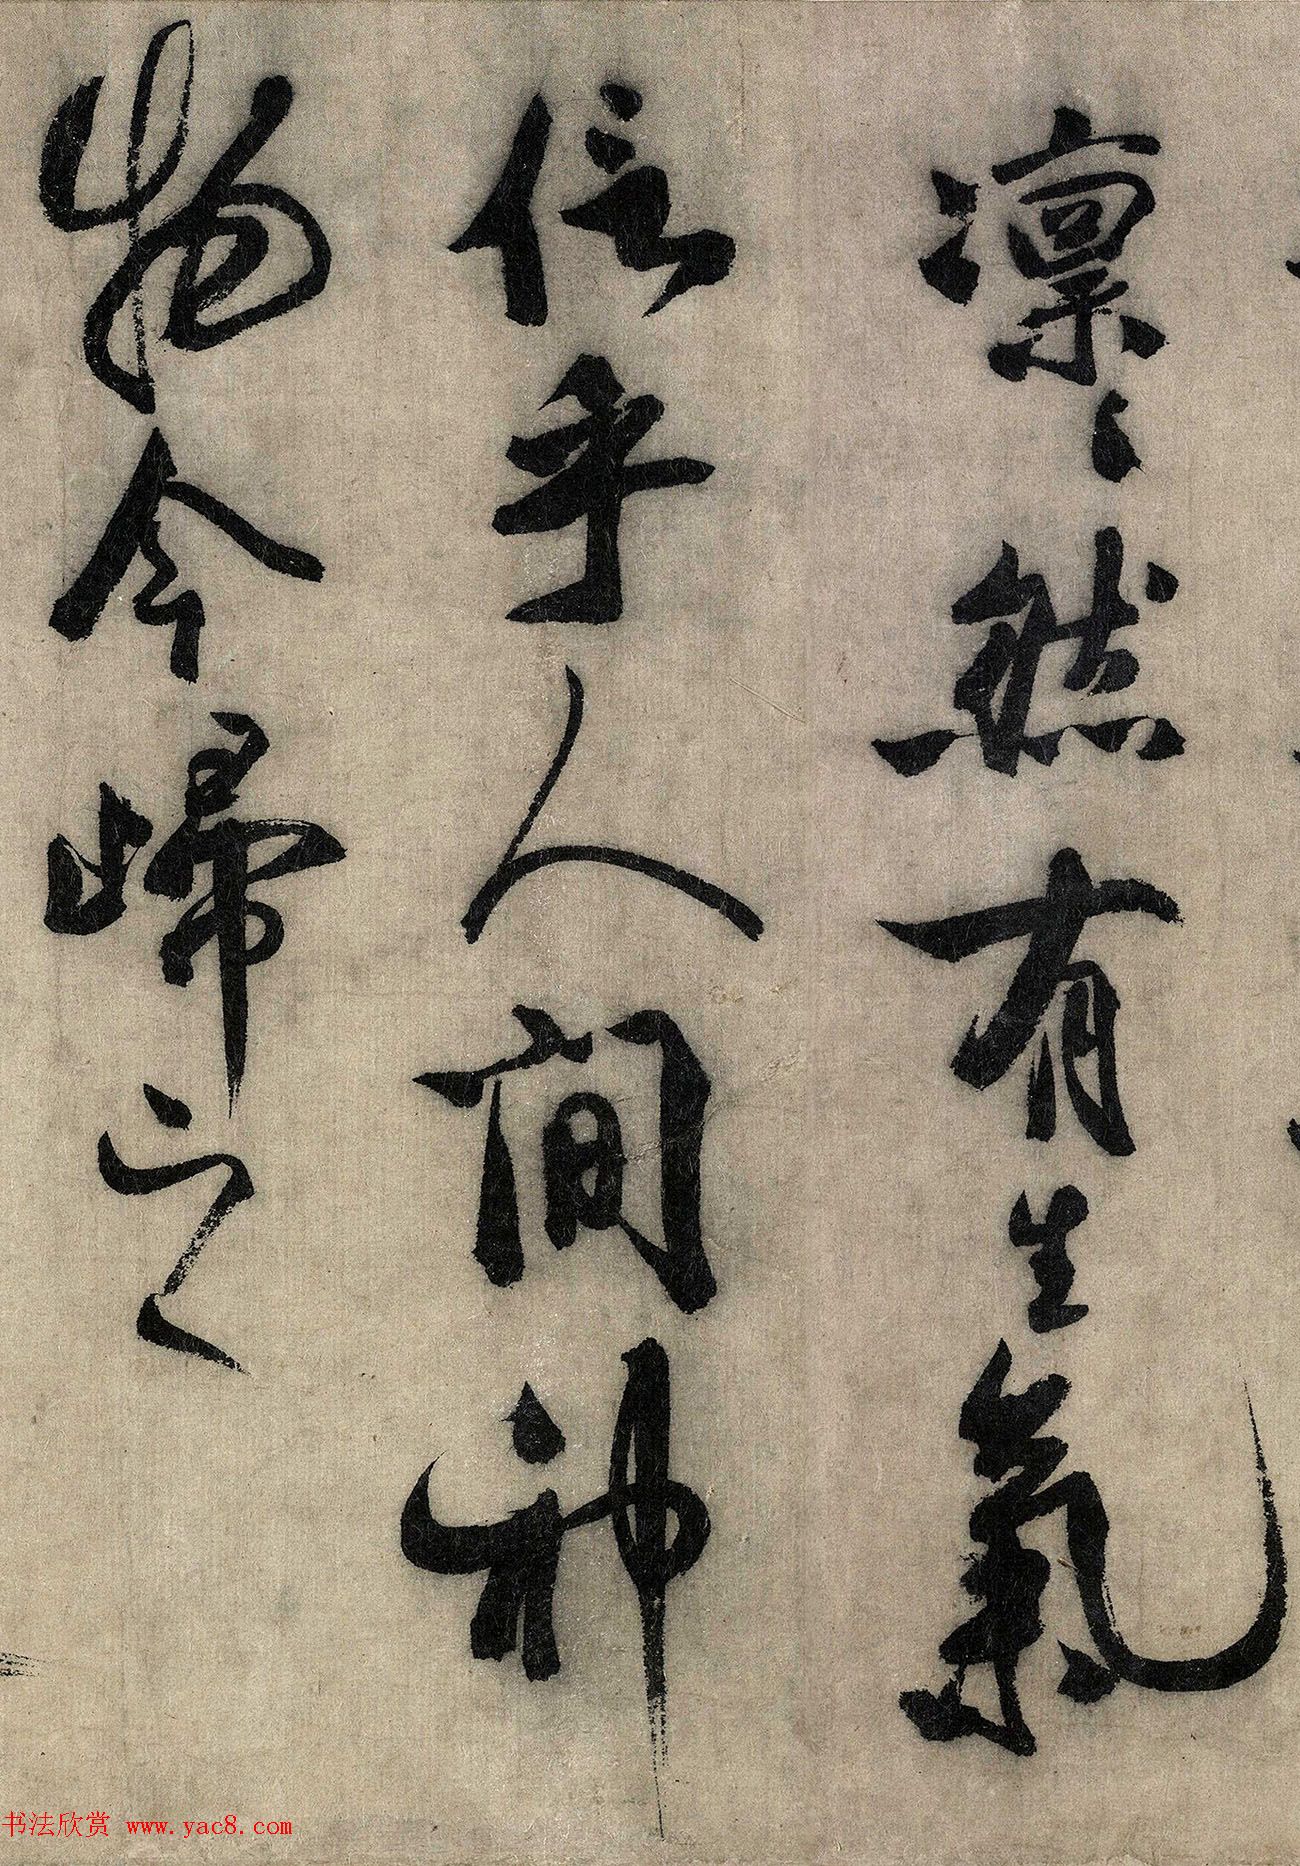 凛〻然有生氣
信乎人間神
物今歸之
书法欣赏 www.yac8.com